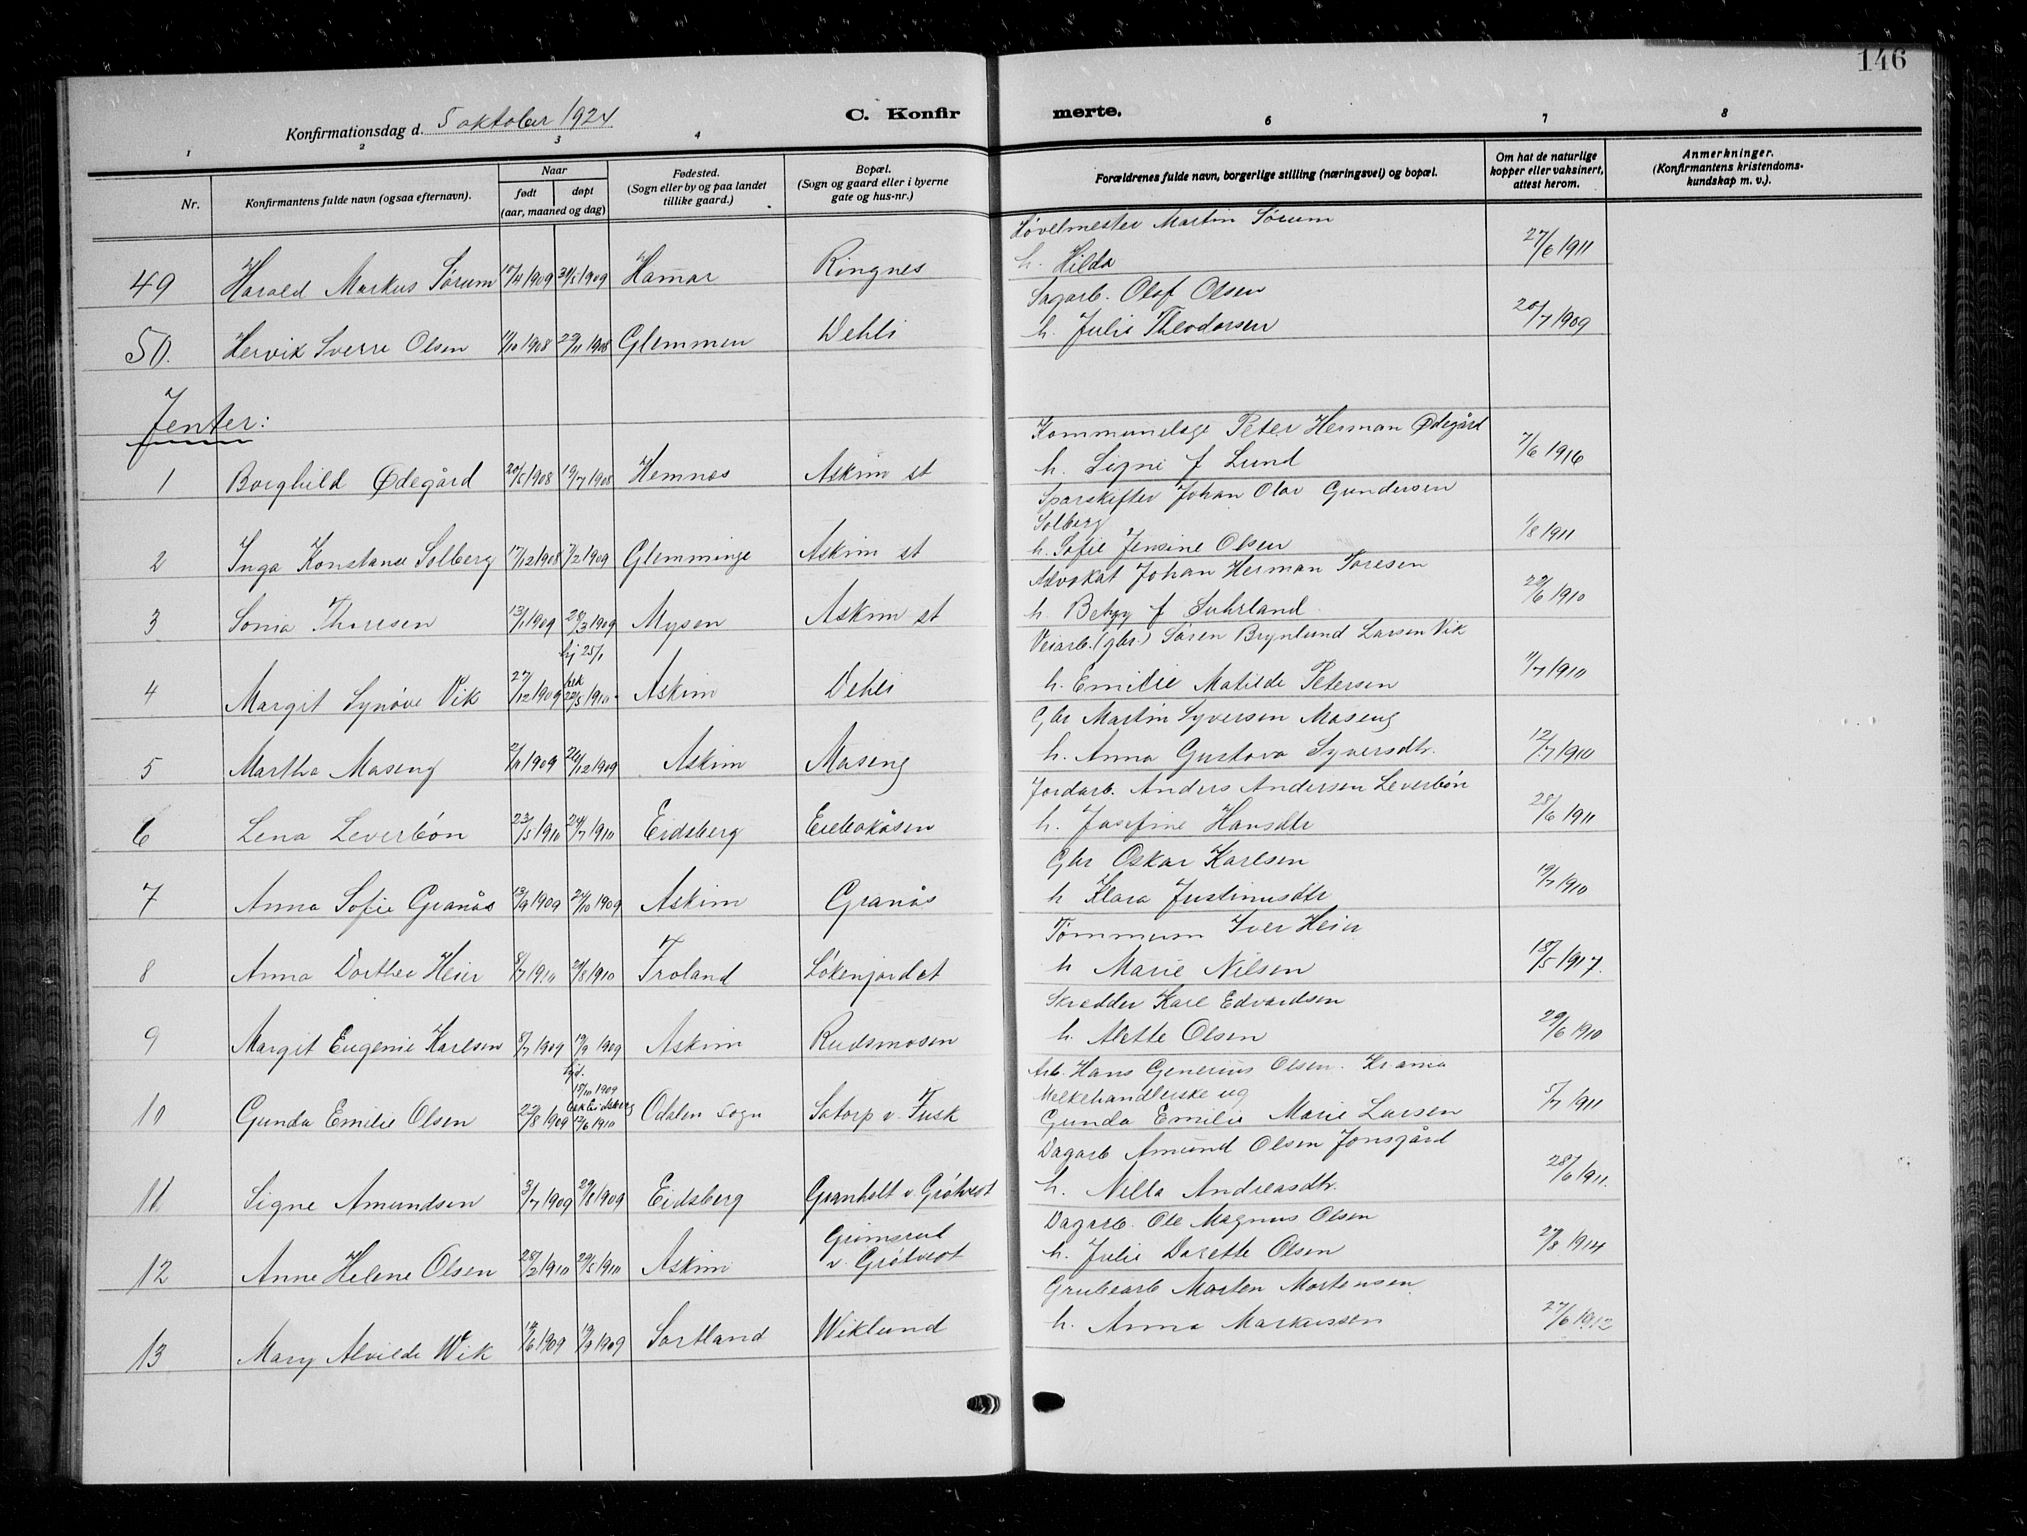 146
Konfirmationsdag d. 5 oktober 1924
C. Konfirmerte.
1 2 3 4 6 7 8
Nr.
Konfirmantens fulde navn (ogsaa efternavn).
Naar
født døpt
(aar, maaned og dag)
Fødested.
(Sogn eller by og paa landet
tillike gaard.)
Bopæl.
(Sogn og gaard eller i byerne
gate og hus-nr.)
Forældrenes fulde navn, borgerlige stilling (næringsvei) og bopæl.
Om hat de naturlige
kopper eller vaksinert,
attest herom.
Anmerkninger.
(Konfirmantens kristendoms-
kundskap m. v.).
Høvelmester Martin Sørum
49 Harald Markus Sørum 1909 1909 Hamar Ringnes h. Hilda 27/6 1911
Sagarb. Olaf Olsen
50. Hervik Sverre Olsen 1908 1908 Glemmen Dehli h. Julie Theodorsen 20/7 1909
Jenter:
Peter Herman Ødegård
1 Borghild Ødegård 20/5 1908 19/7 1908 Hemnes Askim st h. Signe f Lund 7/6 1916
Johan Olav Gundersen
Solberg
2 Inga Konstanse Solberg 17/12 1908 7/2 1909 Glemminge Askim st h. Sofie Jensine Olsen 1/8 1911
Advokat Johan Herman Toresen
3 Sonia Thoresen 13/1 1909 28/3 1909 Mysen Askim st h. f Suhrland 29/6 1910
Veiarb. (gbr.) Søren Brynlund Larsen Vik
hj 25/1
4 Margit Synøve Vik 27/12 1909 22/5 1910 Askim Dehli h. Emilie Matilde Petersen 11/7 1910
Gbr Martin Syversen Maseng
5 Martha Maseng 2/11 1909 26/12 1909 Askim Maseng h. Anna Gustava Syversdtr. 12/7 1910
Jordarb. Anders Andersen Leverbøn
6 Lena Leverbøn 23/5 1910 24/7 1910 Eidsberg h. Josefine Hansdtr 28/6 1911
Gbr Oskar Karlsen
7 Anna Sofie Granås 13/9 1909 24/10 1909 Askim Granås h Klara Justinusdtr 19/7 1910
Tømmerm Iver Heier
8 Anna Dorthea Heier 8/7 1910 21/8 1910 Troland Løkenjordet h Marie Nilsen 18/5 1917.
Skredder Karl Edvardsen
9 Margit Eugenie Karlsen 8/7 1909 19/9 1909 Askim Rudsmosen h. Alette Olsen 29/6 1910
Arb. Hans Generius Olsen. Krania
15/10 1909
Melkehandlerske ug
10 Gunda Emilie Olsen 22/8 1909 12/6 1910 Odalen sogn Satorp v. Tusk Gunda Emilie Marie Larsen 5/7 1911
Dagarb Amund Olsen Jonsgård
11 Signe Amundsen 3/7 1909 29/8 1909 Eidsberg Granholt v. Grøtvedt h. Nilla Andreasdtr. 28/6 1911.
Dagarb. Ole Magnus Olsen
Grimsrud
12 Anne Helene Olsen 28/2 1910 29/5 1910 Askim v. Grøtvedt h. Julie Dorette Olsen 27/8 1914
Grubearb Morten Mortensen
13 Mary Alvilde Wik 1909 19/9 1909 Sortland Wiklund h. Anna Markussen 27/6 1912